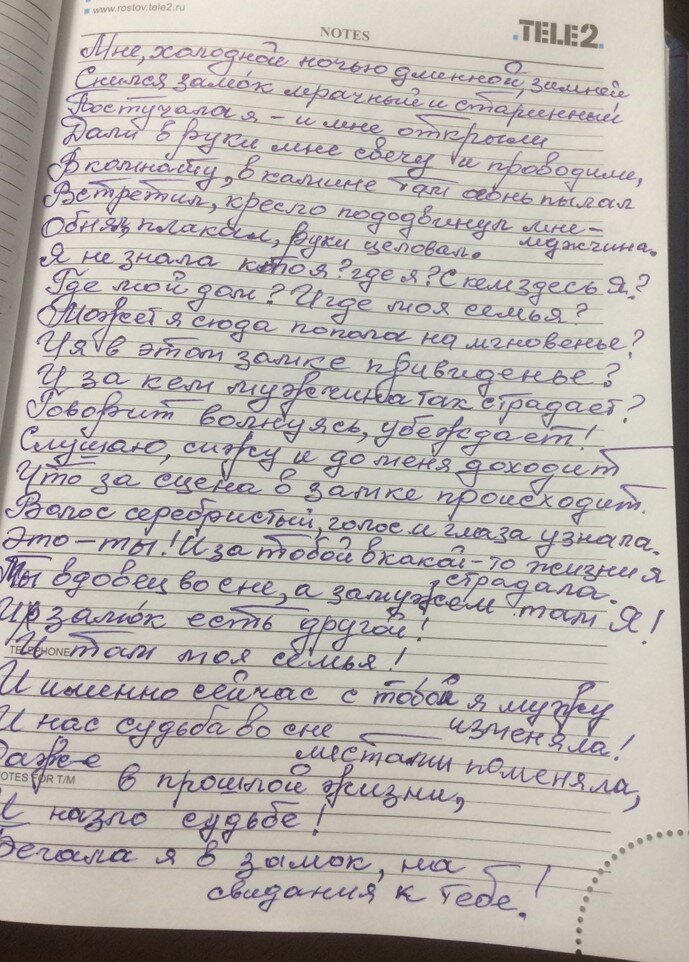 www.rostov.tele2.ru
NOTES
TELE2
Мне, холодной ночью длинной, зимней
Снился замок мрачный и старинный
Постучала я – и мне открыли
Дали в руки мне свечу и проводили,
В комнату, в камине там огонь пылал
Встретил, кресло пододвинул мне –
мужчина.
Обнял, плакал, руки целовал.
Я не знала кто я? где я? С кем здесь я?
Где мой дом? И где моя семья?
Может я сюда попала на мгновенье?
И я в этом замке привиденье?
И за кем мужчина так страдает?
Говорит волнуясь, убеждает!
Слушаю, сижу и до меня доходит
Что за сцена в замке происходит.
Волос серебристый, голос и глаза узнала.
Это – ты! И за тобой в какой-то жизни я
страдала.
Ты вдовец во сне, а замужем там Я!
И замок есть другой!
TELEPHONE
И там моя семья!
И именно сейчас с тобой я мужу
изменяла!
И нас судьба во сне
местами поменяла,
Даже
NOTES FOR T/M
в прошлой жизни,
И назло судьбе!
Бегала я в замок, на
свидания к тебе!